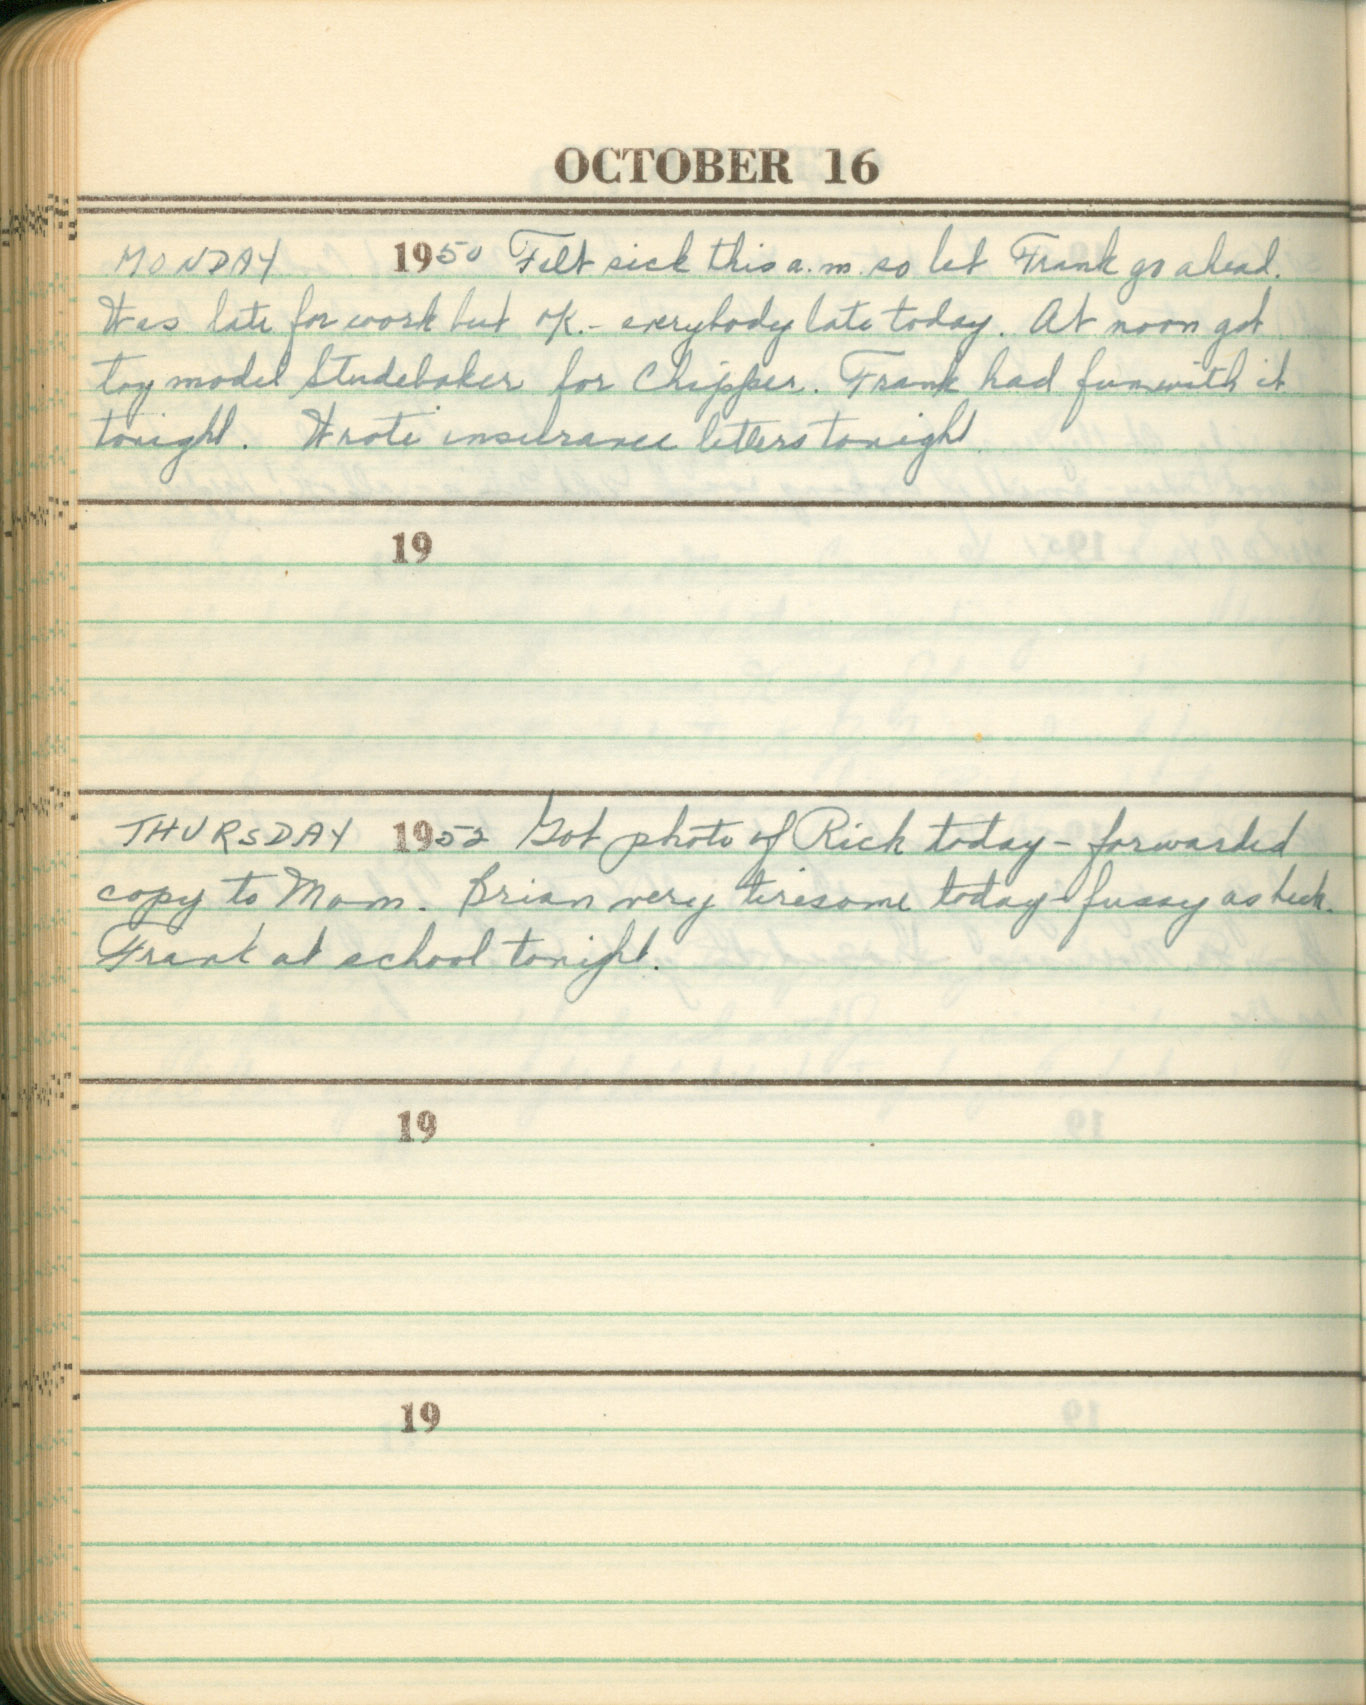 OCTOBER 16
MONDAY 1950 Felt sick this a.m. so let Frank go ahead.
Was late for work but OK. - everybody late today. At noon got
toy model Studebaker for Chipper. Frank had fun with it
tonight. Wrote insurance letters tonight
19
THURSDAY 1952 Got photo of Rick today - forwarded
copy to Mom. Brian very tiresome today - fussy as heck.
Frank at school tonight.
19
19